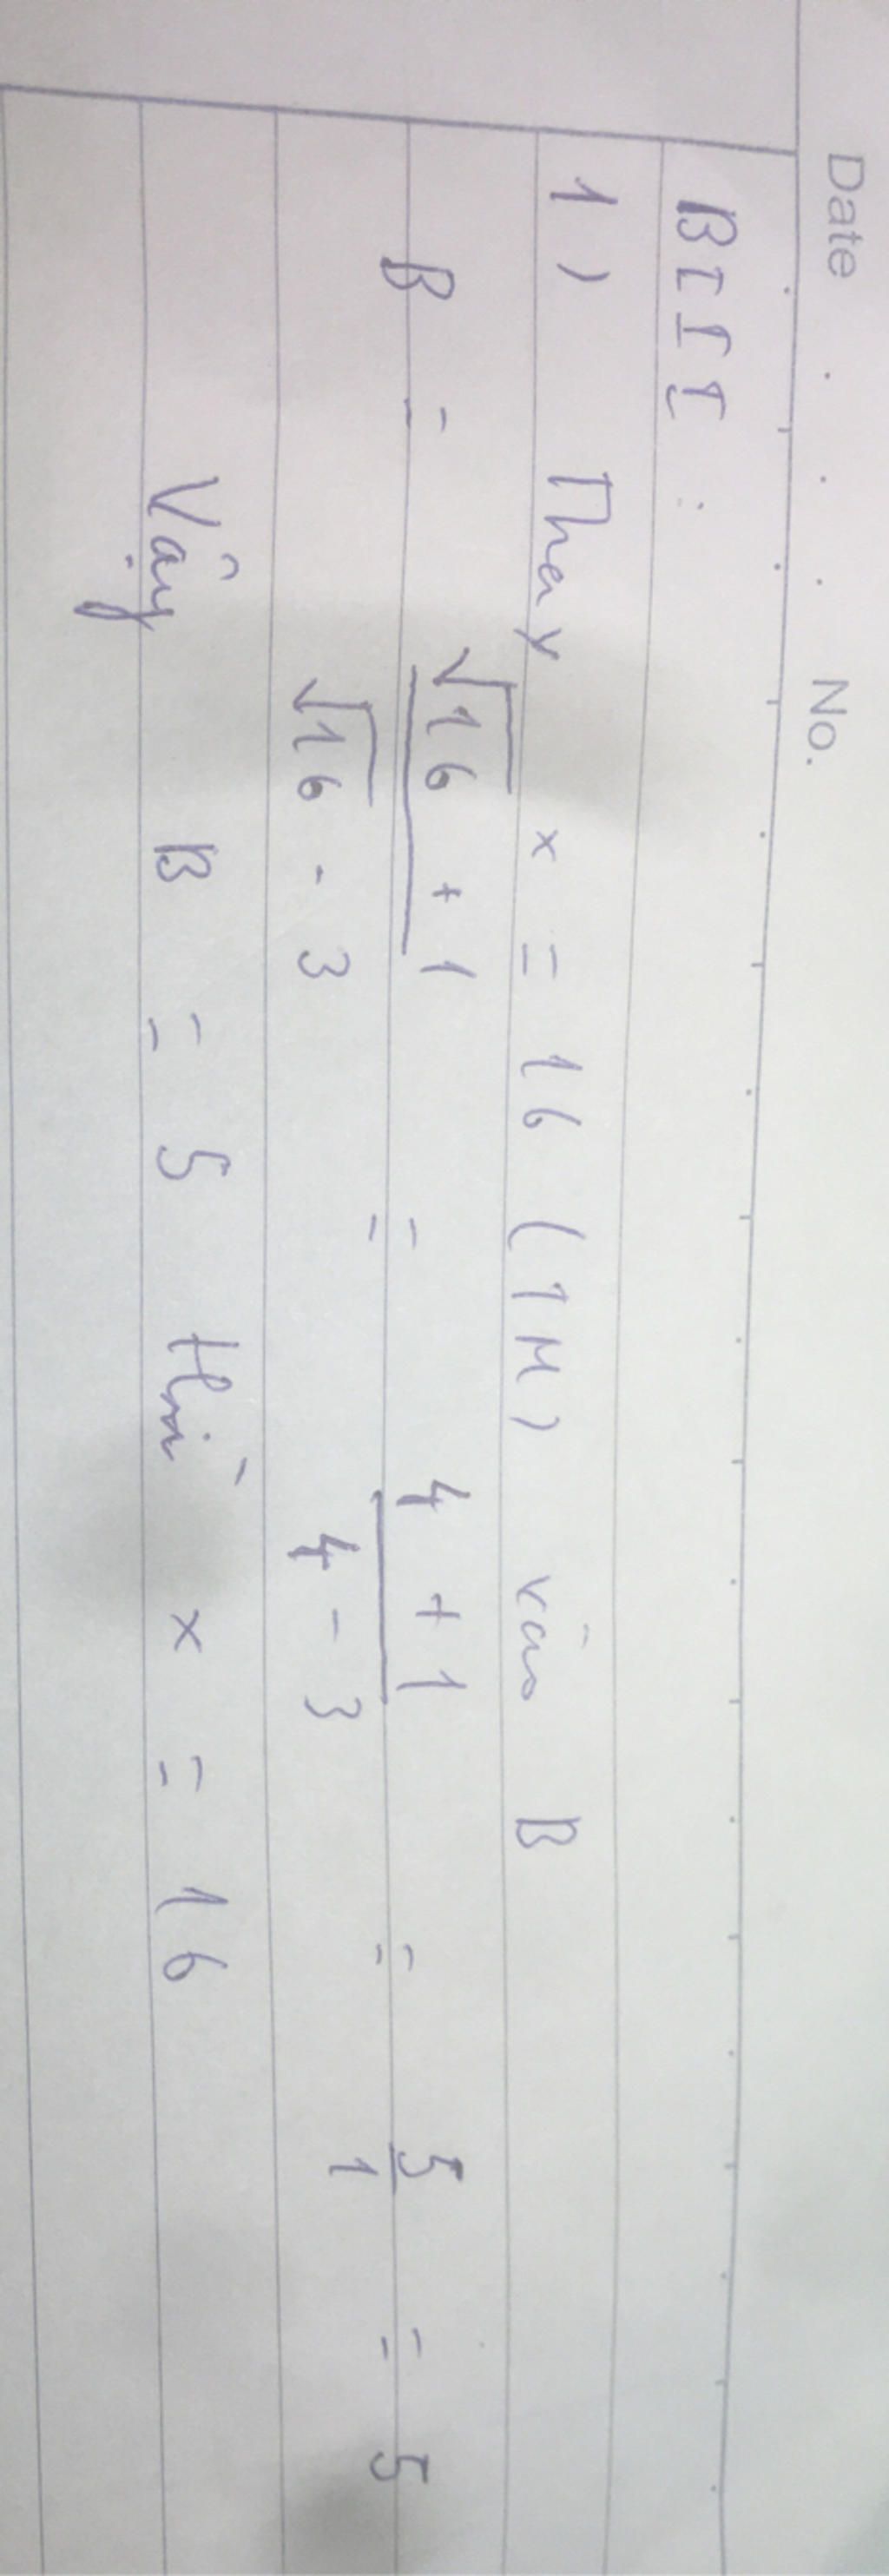 Date . . . No.
BIII :
1) Thay x = 16 (TM) vào B
B = √16 + 1 / √16 - 3 = 4 + 1 / 4 - 3 = 5 / 1 = 5
Vậy B = 5 thì x = 16